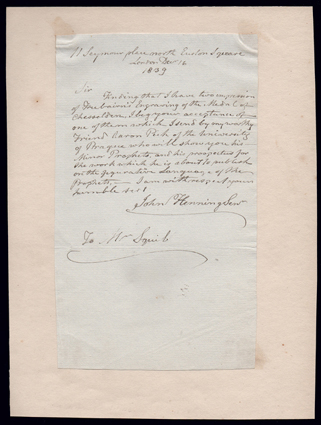 11 Seymour place north Euston Square
London Decr 16
1839
Sir
Finding that I have two impressions
of Engraving of the Medal of
Cheselden, I beg your acceptance of
one of them which I send by my worthy
Friend Aaron Pick of the University
of Prague who will show you his
Minor Prophets, and his prospectus for
the work which he is about to publish
on the figurative Language of the
Prophets, — I am with respect your
humble Sert
John Henning Senr
To Mr Squib